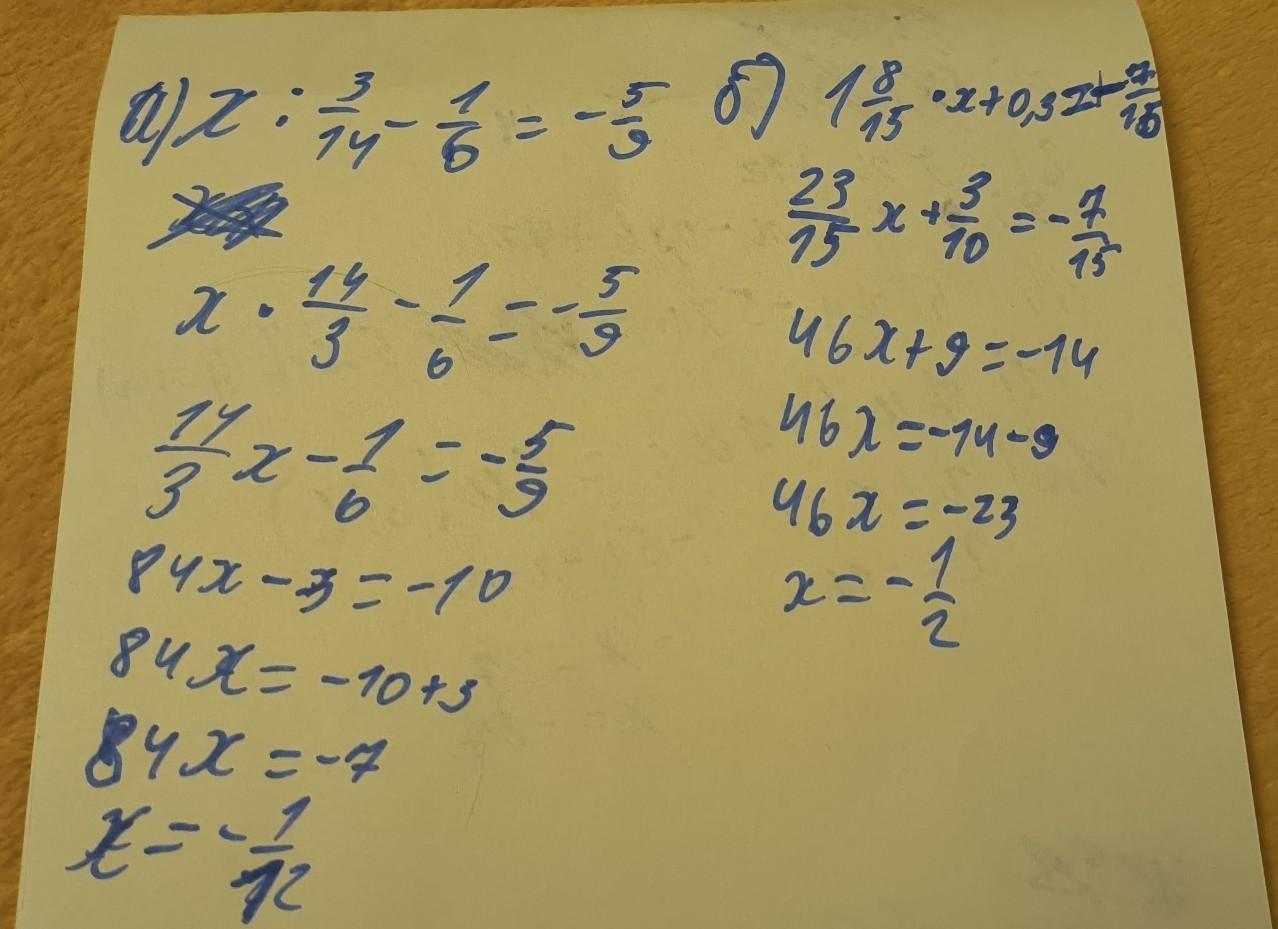 а) x : 3/14 - 1/6 = -5/9
x · 14/3 - 1/6 = -5/9
14/3 x - 1/6 = -5/9
84x - 3 = -10
84x = -10+3
84x = -7
x = -1/12
б) 1 8/15 · x + 0,3 = -7/15
23/15 x + 3/10 = -7/15
46x + 9 = -14
46x = -14-9
46x = -23
x = -1/2